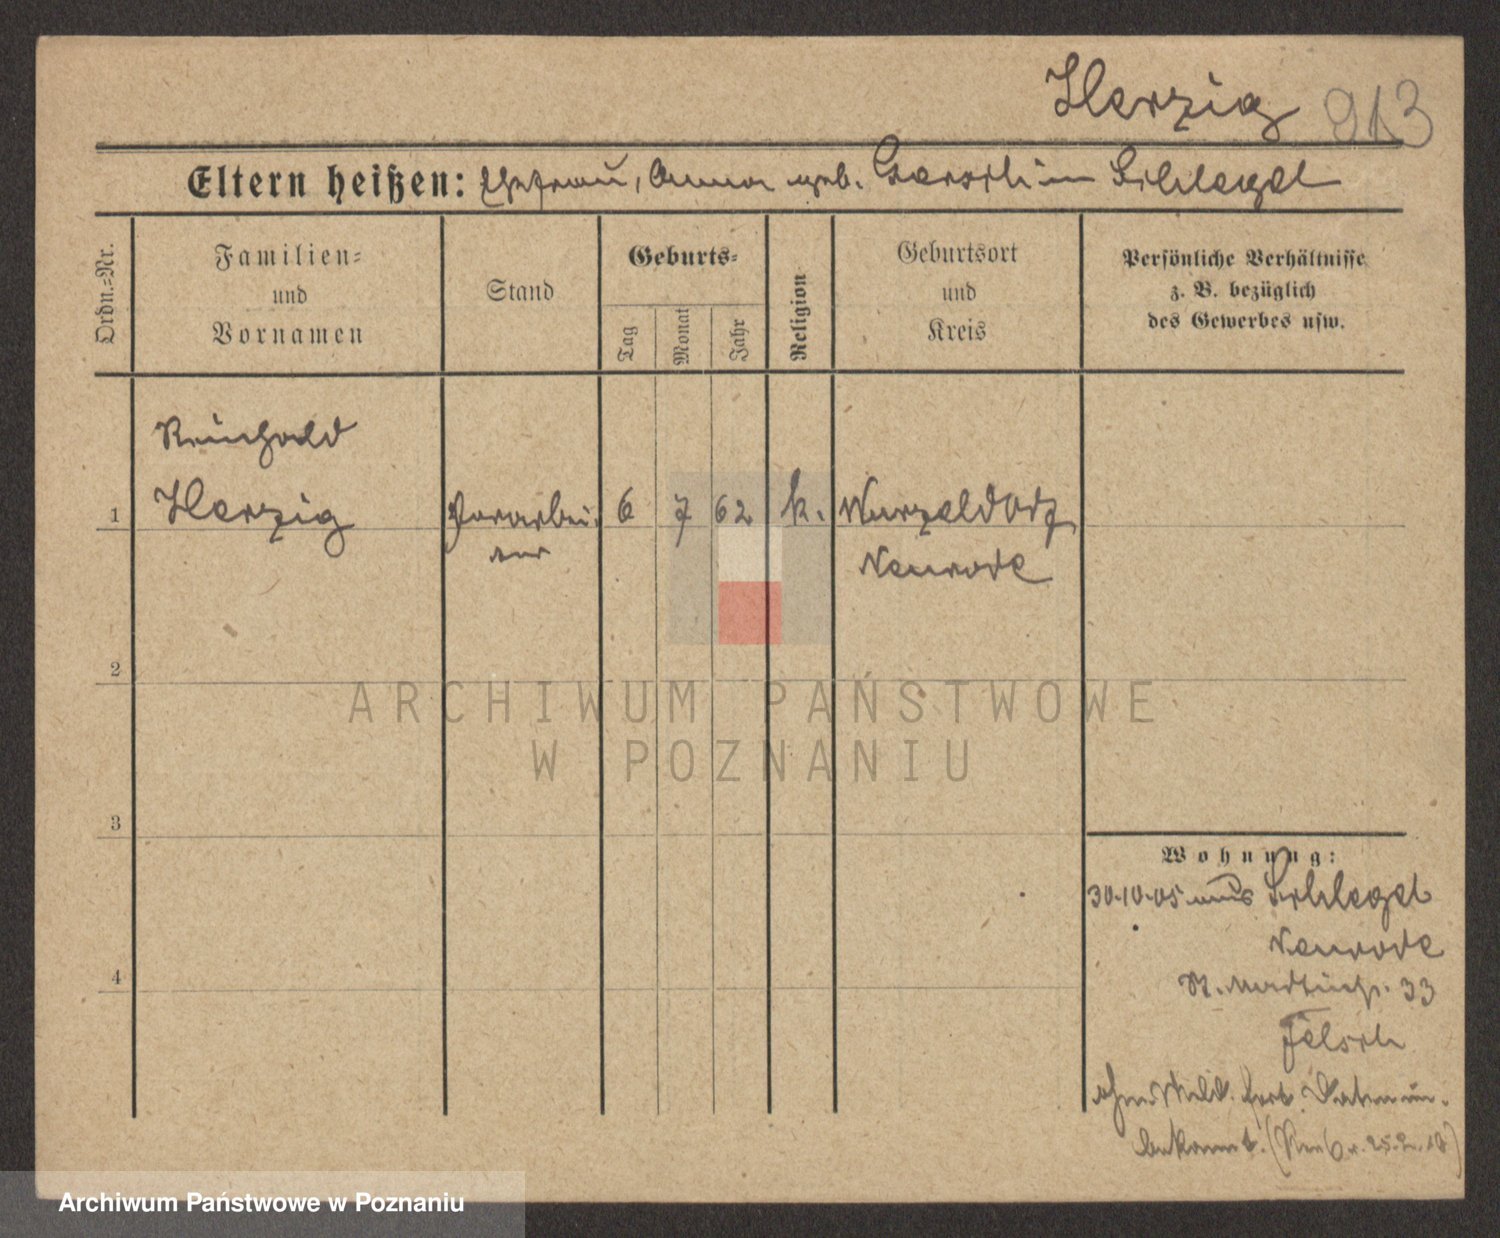 Herzig 913
Eltern heißen: Ehefrau, Anna geb. in Schlegel
Ordn.=Nr.
Familien=
und
Vornamen
Stand
Geburts=
Tag
Monat
Jahr
Religion
Geburtsort
und
Kreis
Persönliche Verhältnisse
z. B. bezüglich
des Gewerbes usw.
Reinhold
1 Herzig Vorarbei- 6 7 62 k. Wurzeldorf
ter Neurode
2
3
4
Wohnung:
30.10.05 aus Schlegel
Neurode
St. Martinstr. 33
Felsch
ohne Meld. fort. Datum un-
bekannt.
ARCHIWUM PAŃSTWOWE
W POZNANIU
Archiwum Państwowe w Poznaniu